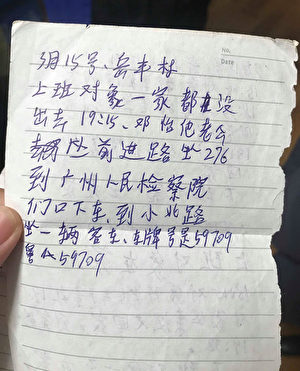 No.
Date
3月15号、岳丰村
上班对象一家都在没
出去 19:15、邓怡佗老会
前进路坐276
到广州人民检察院
们口下车、到小北路
坐一辆客车、车牌号是59709
59709